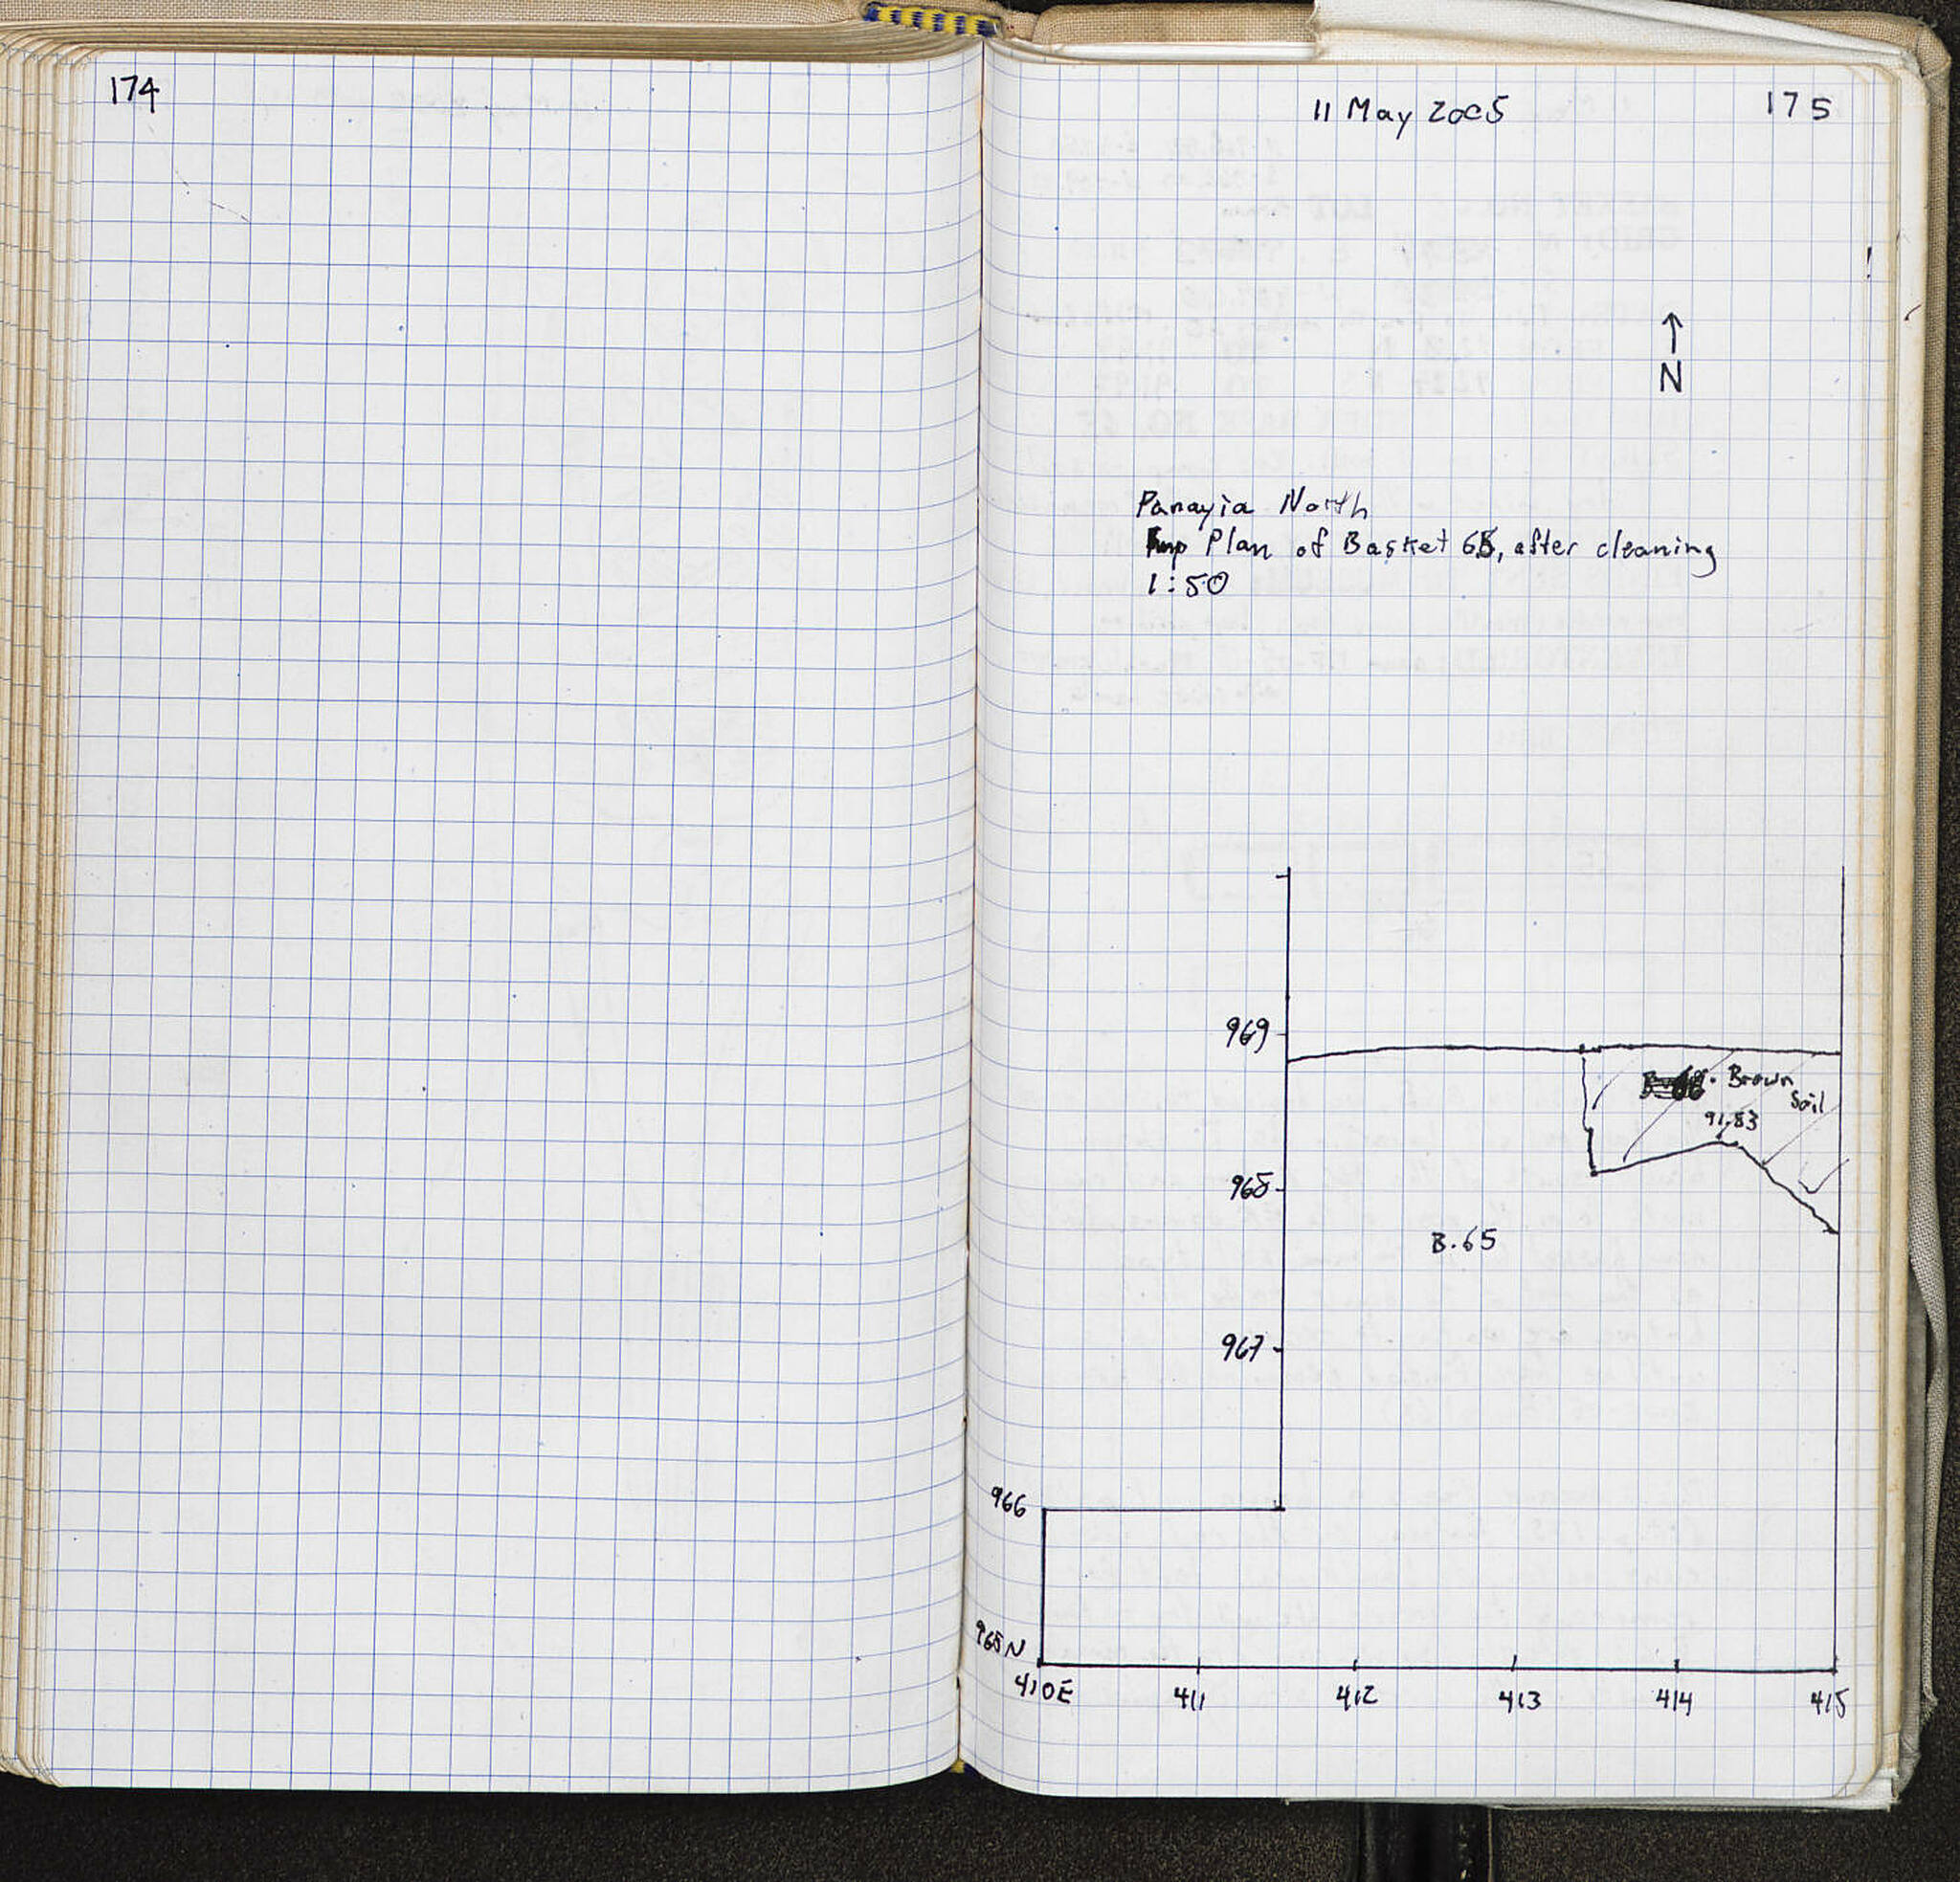 174
11 May 2005
175
N
Panayia North
Plan of Basket 65, after cleaning
1:50
969
Brown
Soil
91.83
968
B.65
967
966
965N
410E
411
412
413
414
415